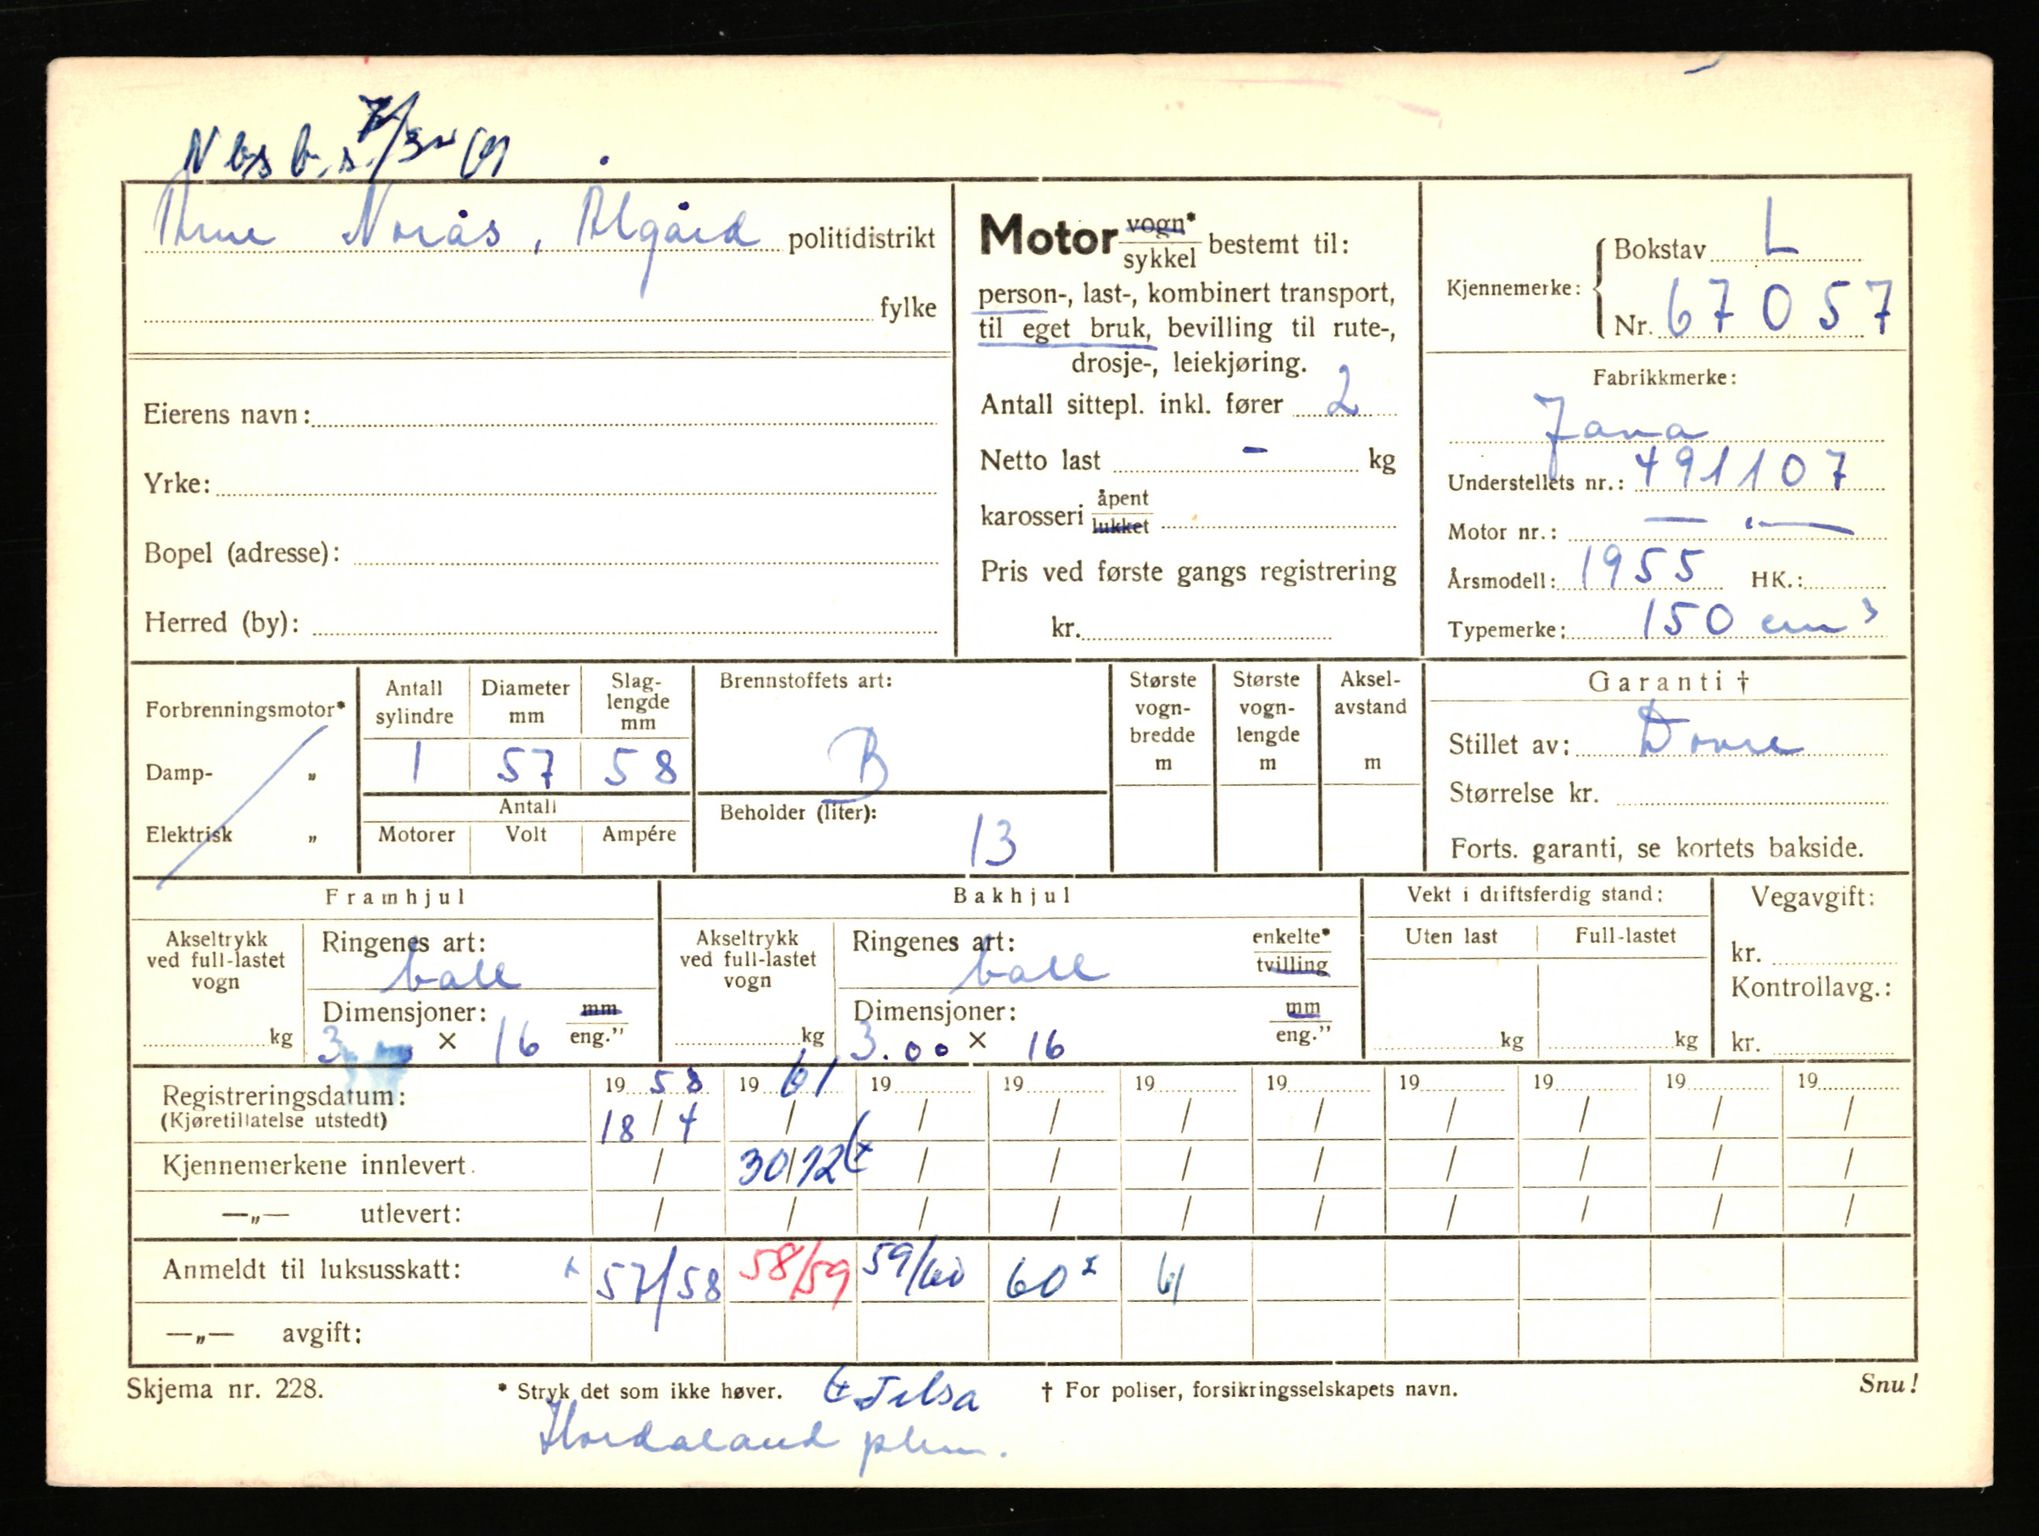 Arne Norås, Ålgård politidistrikt
fylke
Eierens navn:
Yrke:
Bopel (adresse):
Herred (by):
Motor vogn* sykkel bestemt til:
person-, last-, kombinert transport,
til eget bruk, bevilling til rute-,
drosje-, leiekjøring.
Antall sittepl. inkl. fører 2
Netto last - kg
karosseri åpent lukket
Pris ved første gangs registrering
kr.
Kjennemerke: Bokstav L
Nr. 67057
Fabrikkmerke:
Jawa
Understellets nr.: 491107
Motor nr.: — " —
Årsmodell: 1955 HK.:
Typemerke: 150 cm³
Forbrenningsmotor*
Damp- „
Elektrisk „
Antall sylindre
Diameter mm
Slag-lengde mm
1 57 58
Antall
Motorer Volt Ampére
Brennstoffets art:
B
Beholder (liter):
13
Største vogn-bredde m
Største vogn-lengde m
Aksel-avstand m
Garanti †
Stillet av:
Størrelse kr.
Forts. garanti, se kortets bakside.
Framhjul
Akseltrykk ved full-lastet vogn
kg
Ringenes art:
ball
Dimensjoner: mm eng."
3.00 × 16
Bakhjul
Akseltrykk ved full-lastet vogn
kg
Ringenes art: enkelte* tvilling
ball
Dimensjoner: mm eng."
3.00 × 16
Vekt i driftsferdig stand:
Uten last Full-lastet
kg kg
Vegavgift:
kr.
Kontrollavg.:
kr.
Registreringsdatum: 19 58 19 61 19 19 19 19 19 19 19 19
(Kjøretillatelse utstedt) 18/4 / / / / / / / / /
Kjennemerkene innlevert. / 30/12 / / / / / / / /
—„— utlevert: / / / / / / / / / /
Anmeldt til luksusskatt: x 57/58 58/59 59/60 60 x 61
—„— avgift:
Skjema nr. 228. * Stryk det som ikke høver. † For poliser, forsikringsselskapets navn. Snu!
Hordaland